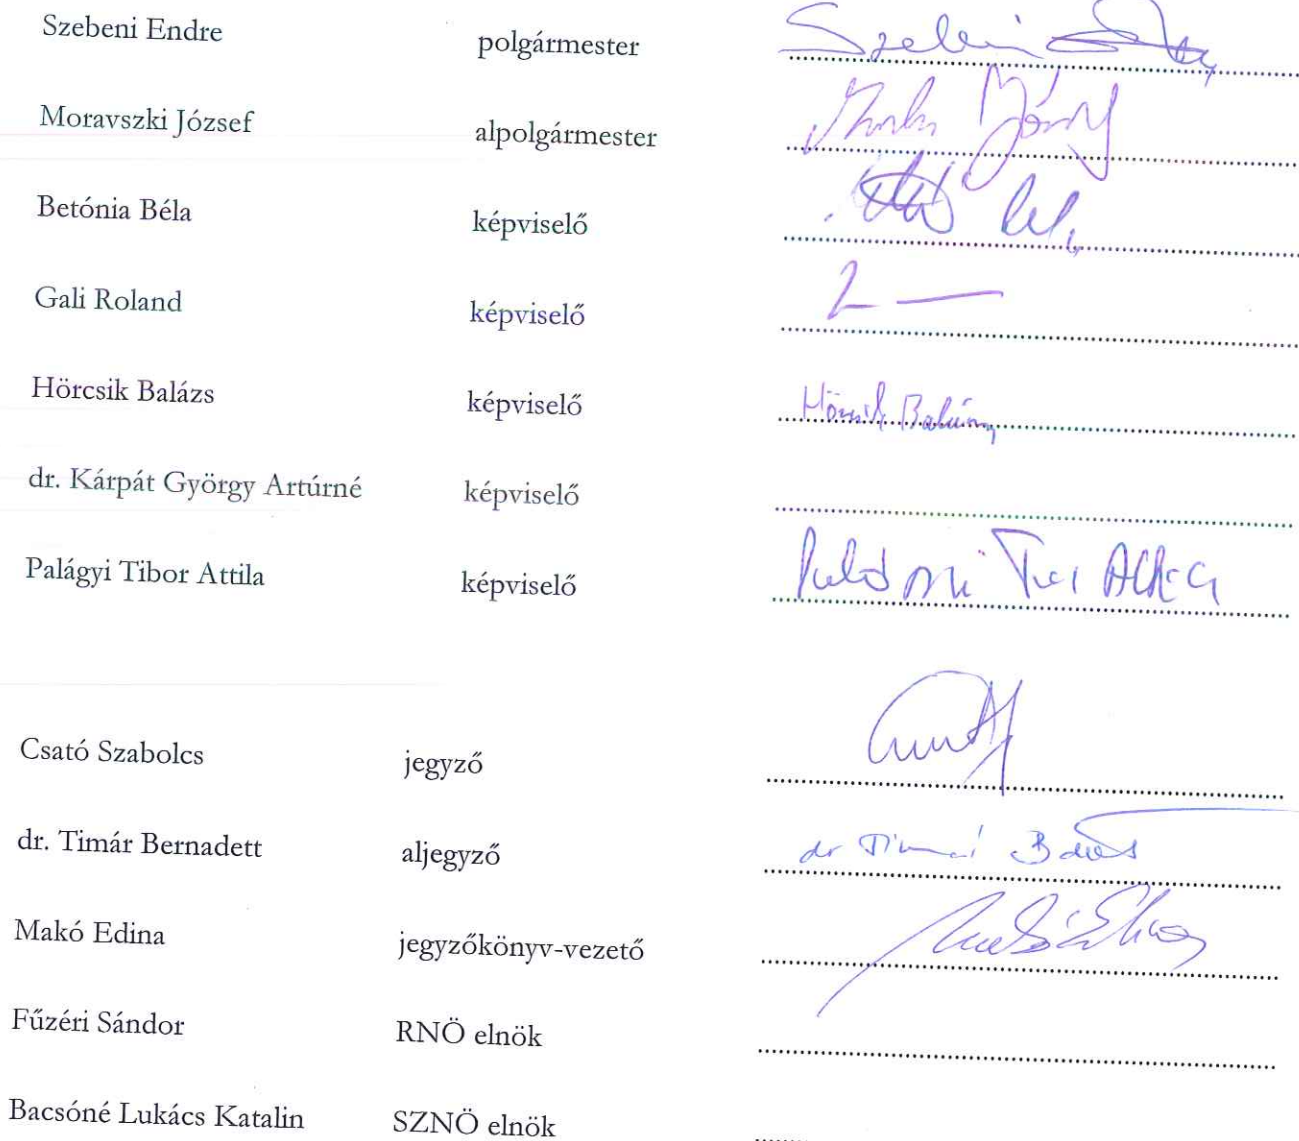 Szebeni Endre polgármester Szebeni
Moravszki József alpolgármester József
Betónia Béla képviselő
Gali Roland képviselő
Hörcsik Balázs képviselő Hörcsik Balázs
dr. Kárpát György Artúrné képviselő
Palágyi Tibor Attila képviselő Attila
Csató Szabolcs jegyző
dr. Timár Bernadett aljegyző dr Timár
Makó Edina jegyzőkönyv-vezető Makó Edina
Fűzéri Sándor RNÖ elnök
Bacsóné Lukács Katalin SZNÖ elnök